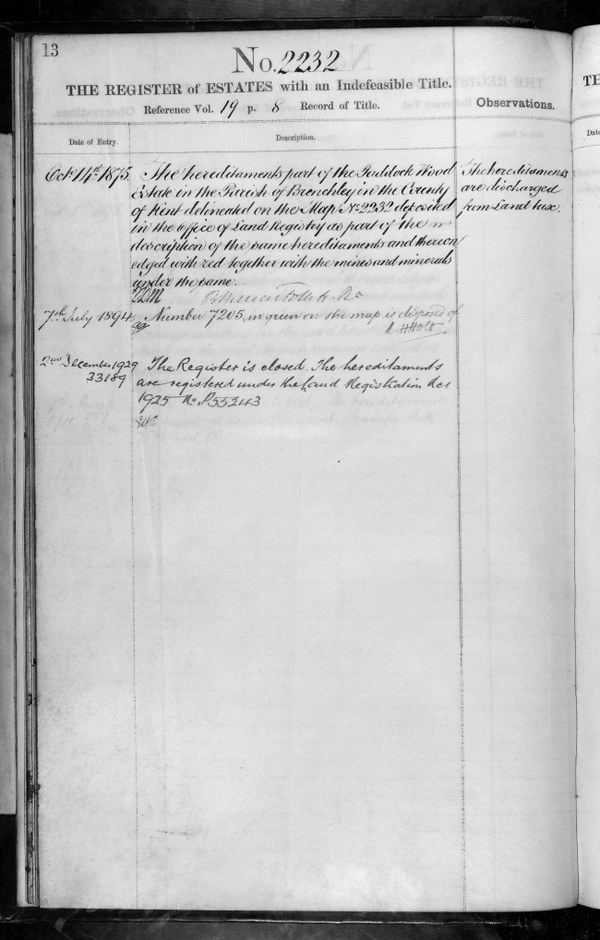 13
No. 2232
THE REGISTER of ESTATES with an Indefeasible Title.
Reference Vol. 19 p. 8 Record of Title.
Observations.
Date of Entry.
Description.
Octr 14th 1875.
The hereditaments part of the Paddock Wood
Estate in the Parish of Brenchley in the County
of Kent delineated on the Map No 2232 deposited
in the Office of Land Registry as part of the
description of the same hereditaments and thereon
edged with red together with the mines and minerals
under the same.
The hereditaments
are discharged
from Land tax.
7th July 1894
Number 7205, in green on the map is disposed of
2nd December 1929
33189
The Register is closed. The hereditaments
are registered under the Land Registration Act
1925 No. P55243
TH
Date